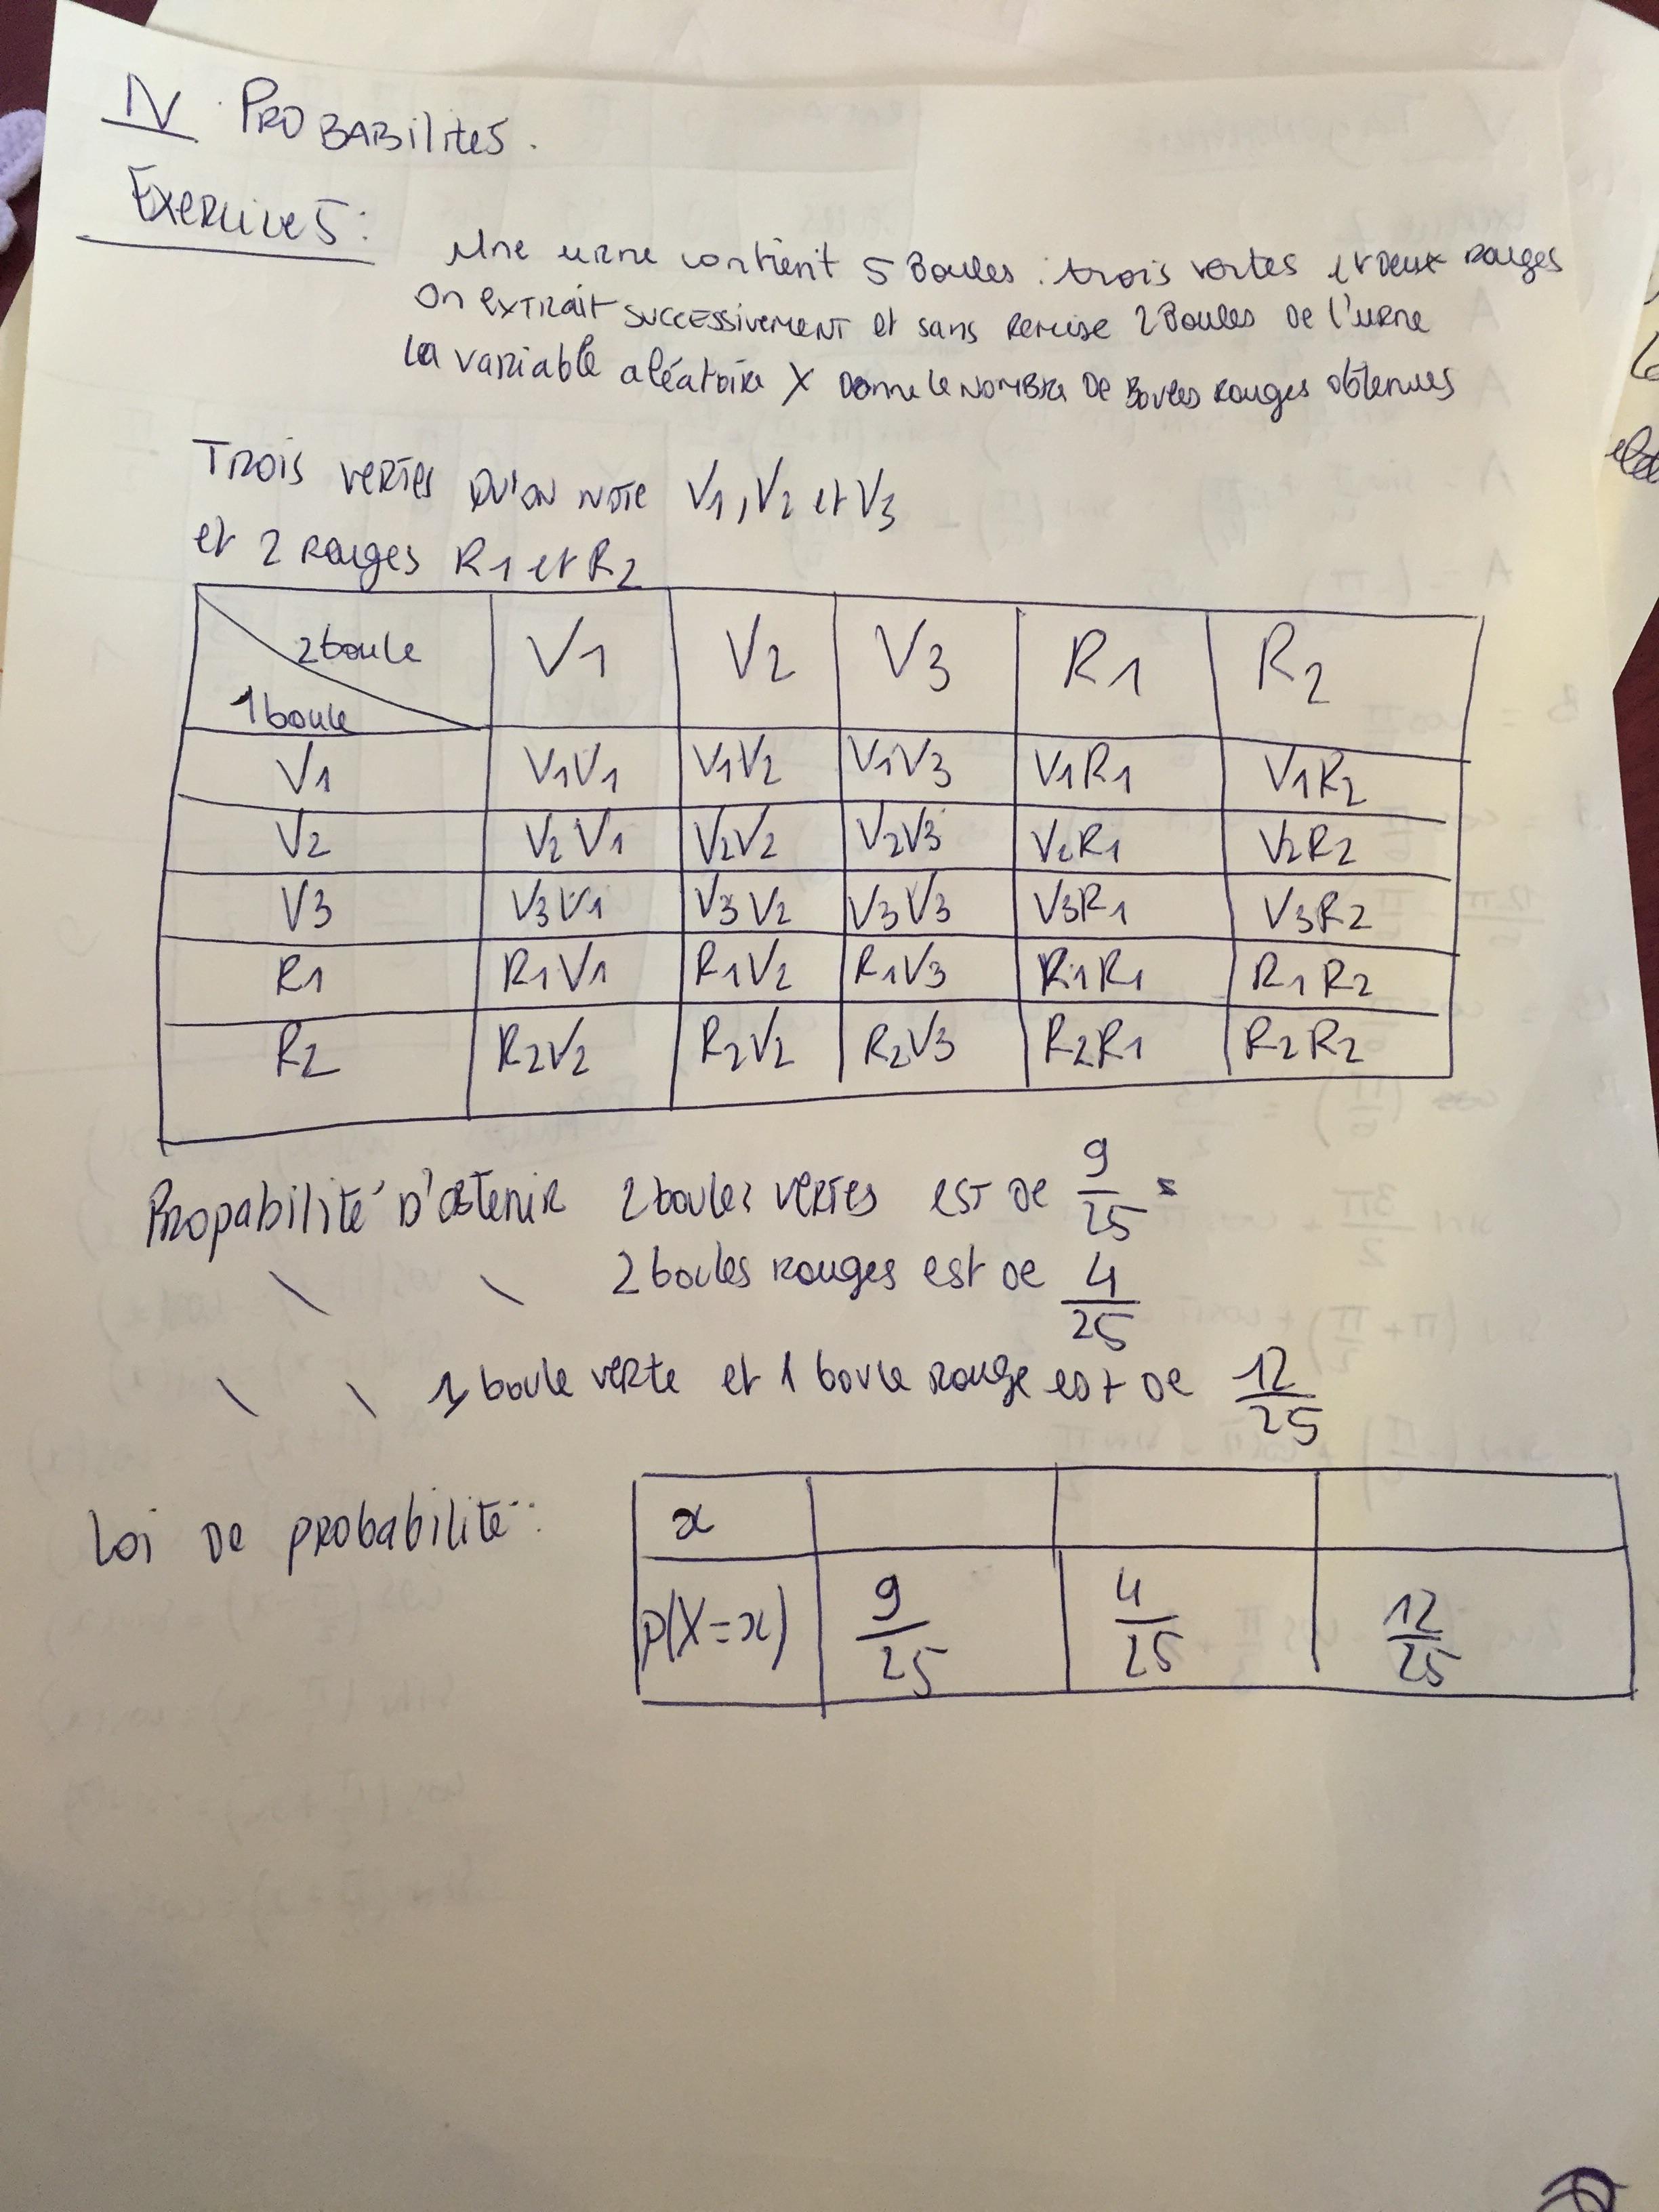 IV PROBABilites.
Exercice 5:
Une urne contient 5 Boules : trois vertes et Deux rouges
On extrait successivement et sans remise 2 Boules De l'urne
La variable aléatoire X Donne le nombre De Boules rouges obtenues
Trois vertes qu'on note V1, V2 et V3
et 2 rouges R1 et R2
2 boule V1 V2 V3 R1 R2
1 boule
V1 V1V1 V1V2 V1V3 V1R1 V1R2
V2 V2V1 V2V2 V2V3 V2R1 V2R2
V3 V3V1 V3V2 V3V3 V3R1 V3R2
R1 R1V1 R1V2 R1V3 R1R1 R1R2
R2 R2V2 R2V2 R2V3 R2R1 R2R2
Propabilité D'obtenir 2 boules vertes est De 9/25 =
\ \ 2 boules rouges est De 4/25
\ \ 1 boule verte et 1 boule rouge est De 12/25
Loi De probabilité : x
p(X=x) 9/25 4/25 12/25